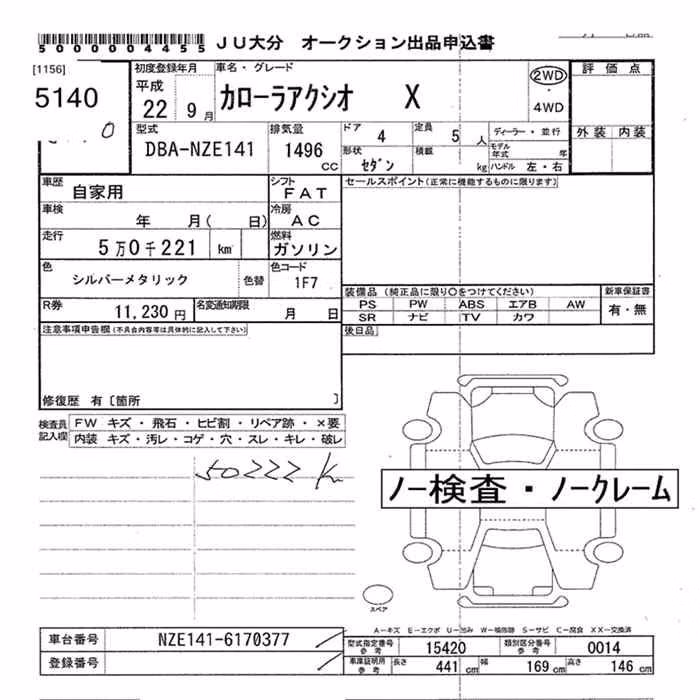 5000004455 JU大分 オークション出品申込書
[1156]
5140
0
初度登録年月 平成 22 9月
車名・グレード カローラアクシオ X
2WD ・ 4WD
評価点
外装 内装
型式 DBA-NZE141
排気量 1496 CC
ドア 4 定員 5 人
形状 セダン 積載 kg
ディーラー・並行
モデル年式 年
ハンドル 左・右
車歴 自家用
シフト FAT
車検 年 月( 日)
冷房 AC
走行 5万0千221 km
燃料 ガソリン
色 シルバーメタリック 色替
色コード 1F7
R券 11,230円
名変通知期限 月 日
セールスポイント(正常に機能するものに限ります)
装備品 (純正品に限り○をつけてください)
PS PW ABS エアB AW
SR ナビ TV カワ
新車保証書 有・無
後日品
注意事項申告欄(不具合内容等は具体的に記入して下さい)
修復歴 有〔箇所 〕
検査員記入欄
FW キズ・飛石・ヒビ割・リペア跡・×要
内装 キズ・汚レ・コゲ・穴・スレ・キレ・破レ
50222 K
ノー検査・ノークレーム
スペア
A−キズ E−エクボ U−凹み W−補修跡 S−サビ C−腐食 XX−交換済
車台番号 NZE141-6170377
登録番号
型式指定番号 参考 15420
類別区分番号 参考 0014
車庫証明用 参考 長さ 441 cm 幅 169 cm 高さ 146 cm